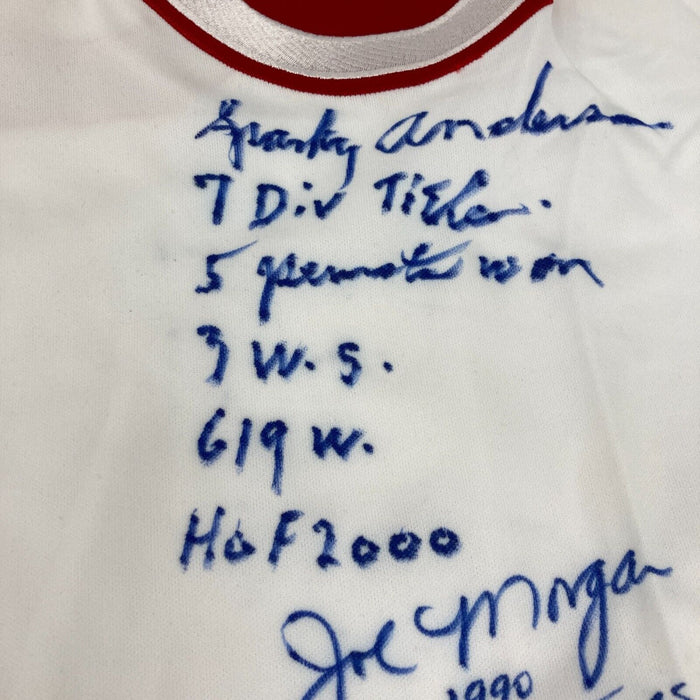 Sparky Anderson
7 Div Titles.
5 pennants won
3 W.S.
619 W.
HoF 2000
Joe Morgan
1990